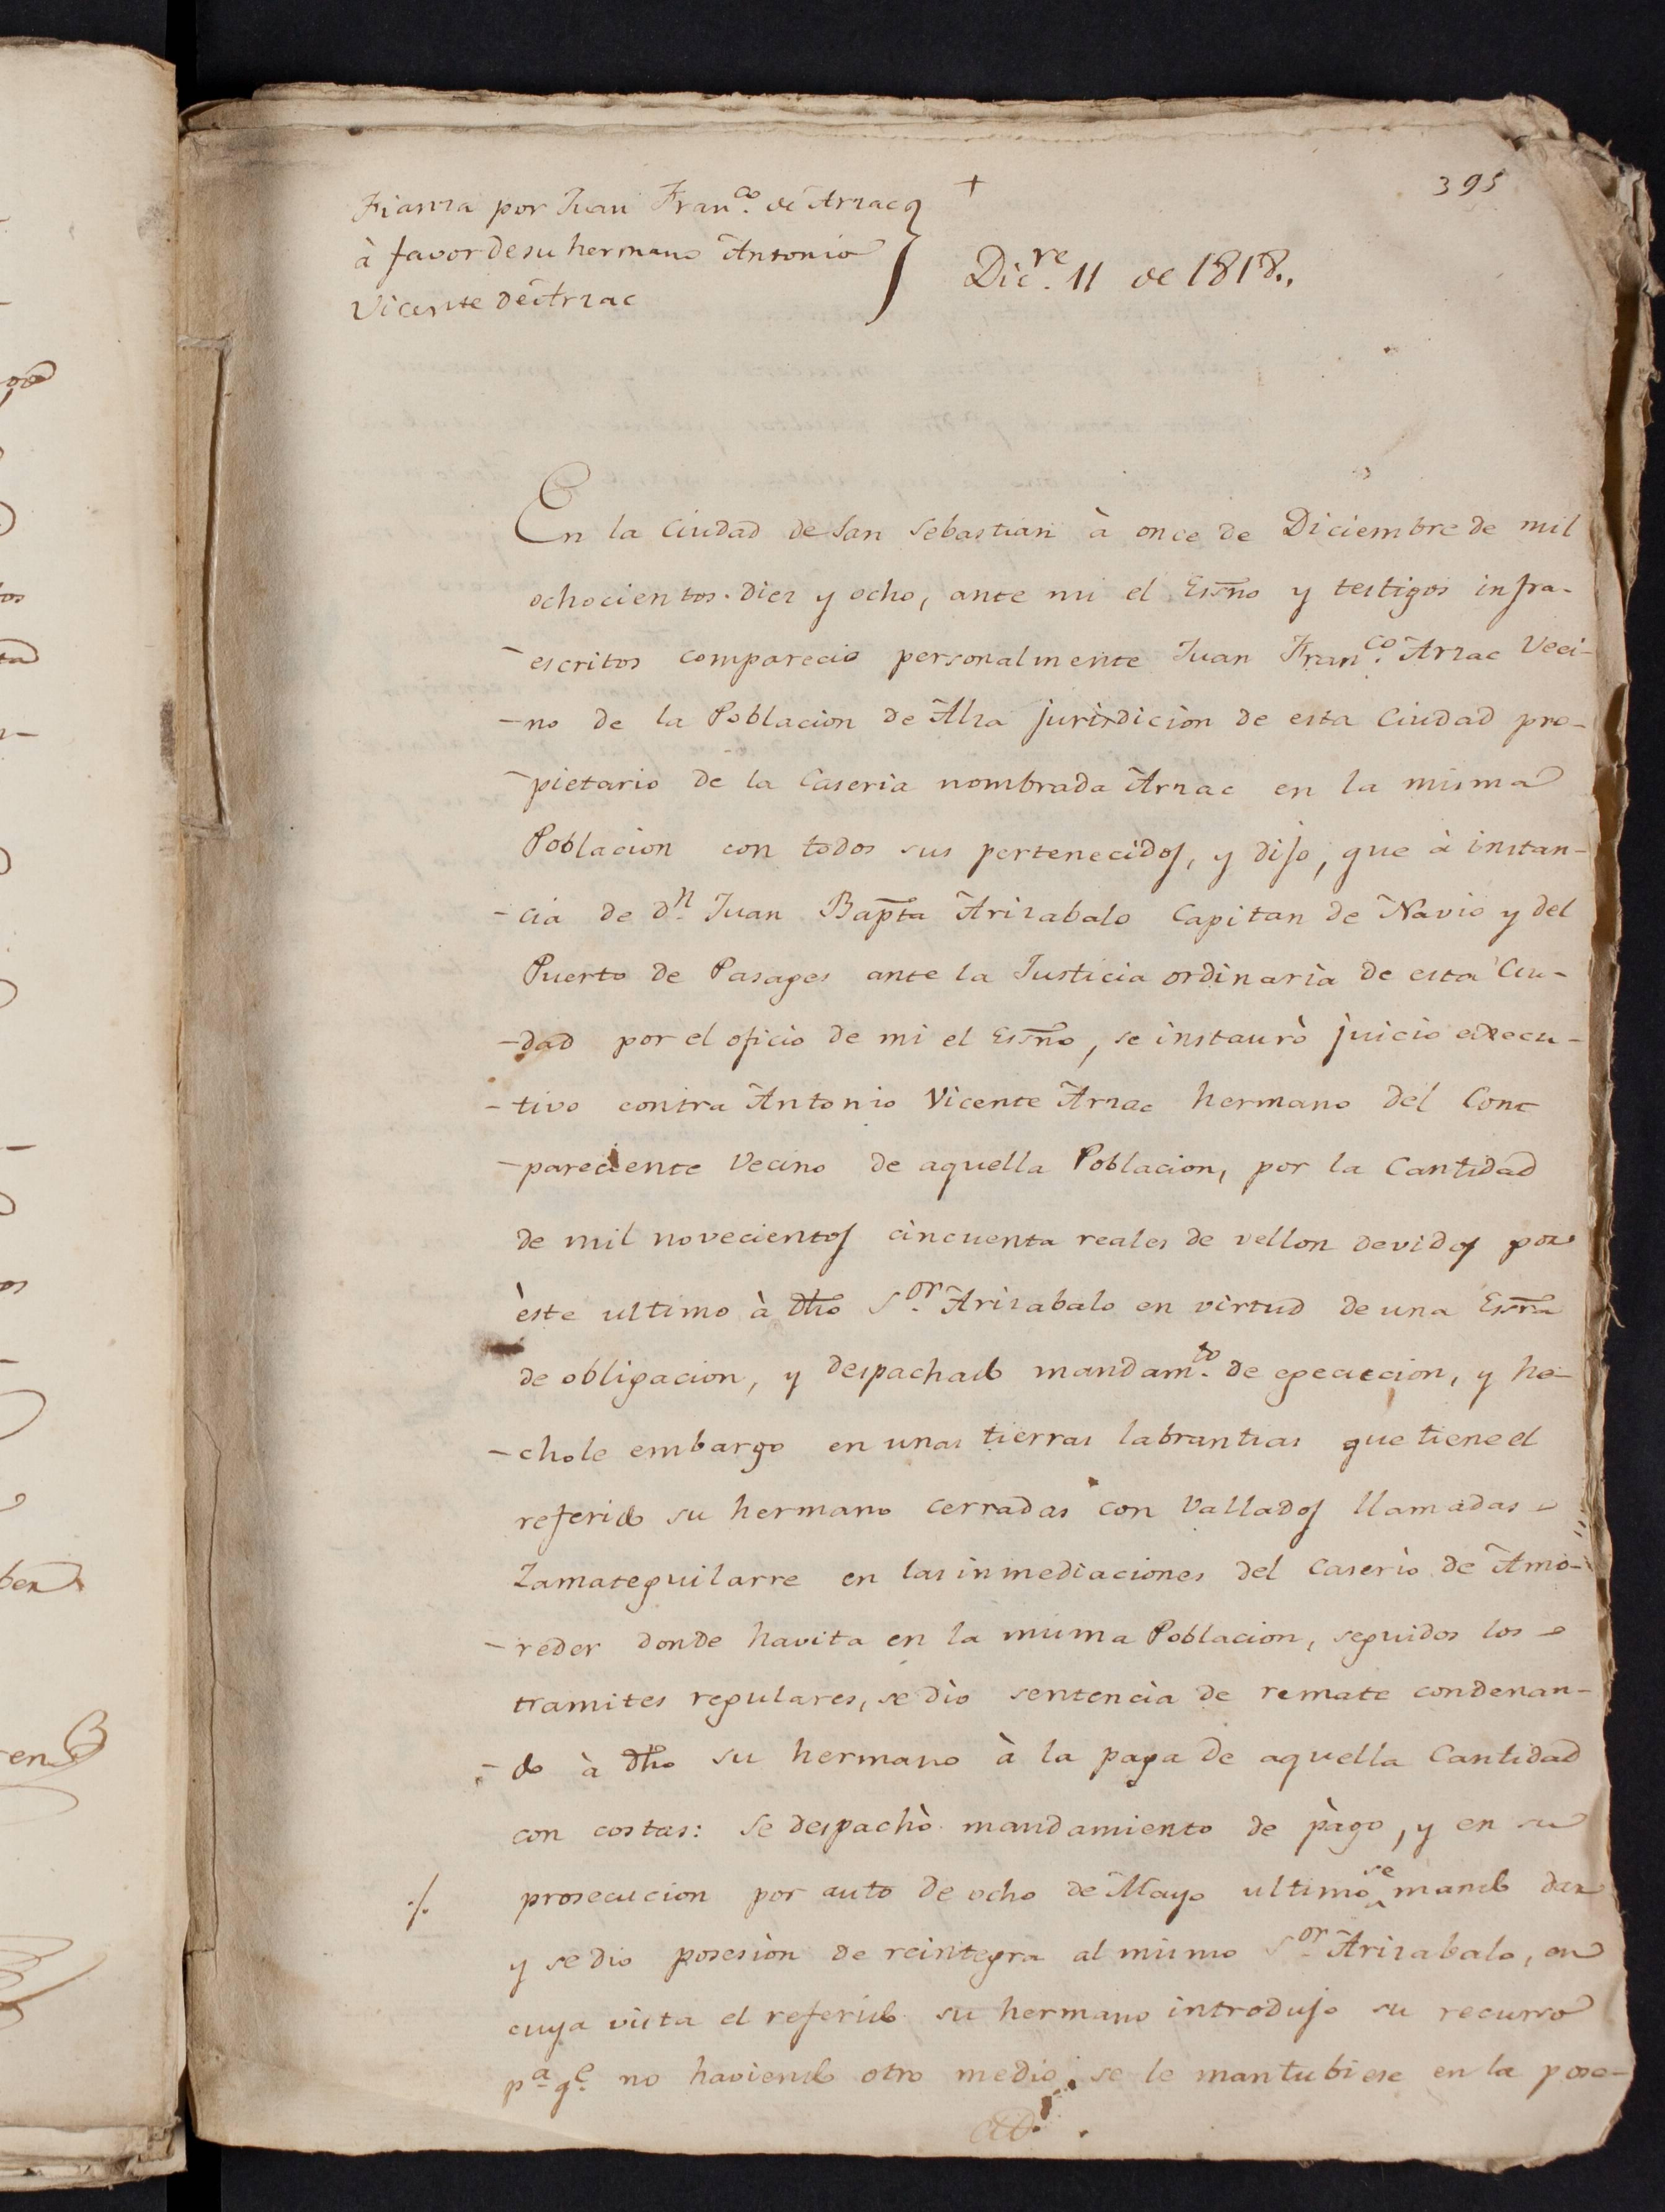 +
395
Fianza por Juan Fran.co de Arzac
à favor de su hermano Antonio
Vicente de Arzac
Dic.re 11 de 1818.,
En la Ciudad de San Sebastian à once de Diciembre de mil
ochocientos diez y ocho, ante mi el Essño y testigos infra-
-escritos comparecio personalmente Juan Fran.co Arzac Veci-
-no de la Poblacion de Alza jurisdicion de esta Ciudad pro-
-pietario de la Caseria nombrada Arzac en la misma
Poblacion con todos sus pertenecidos, y dijo, que à instan-
-cia de Dn. Juan Bapta Arizabalo Capitan de Navio y del
Puerto de Pasages ante la Justicia ordinaria de esta Ciu-
-dad por el oficio de mi el Essño, se instaurò juicio execu-
-tivo contra Antonio Vicente Arzac hermano del Com-
-pareciente Vecino de aquella Poblacion, por la Cantidad
de mil novecientos cincuenta reales de vellon devidos por
èste ultimo à dho S.or Arizabalo en virtud de una Essra
de obligacion, y despachado mandam.to de egecucion, y he-
-chole embargo en unas tierras labrantias que tiene el
referido su hermano cerradas con Vallados llamadas
Zamateguilarre en las inmediaciones del Caserio de Amo-
-reder donde havita en la misma Poblacion, seguidos los
tramites regulares, se dio sentencia de remate condenan-
-do à dho su hermano à la paga de aquella Cantidad
con costas: Se despachò mandamiento de pago, y en su
./. prosecucion por auto de ocho de Mayo ultimo se mandò dar
y se dio posesion de reintegra al mismo S.or Arizabalo, en
cuya vista el referido su hermano introdujo su recurso
p.a q.e no haviendo otro medio se le mantubiese en la pose-